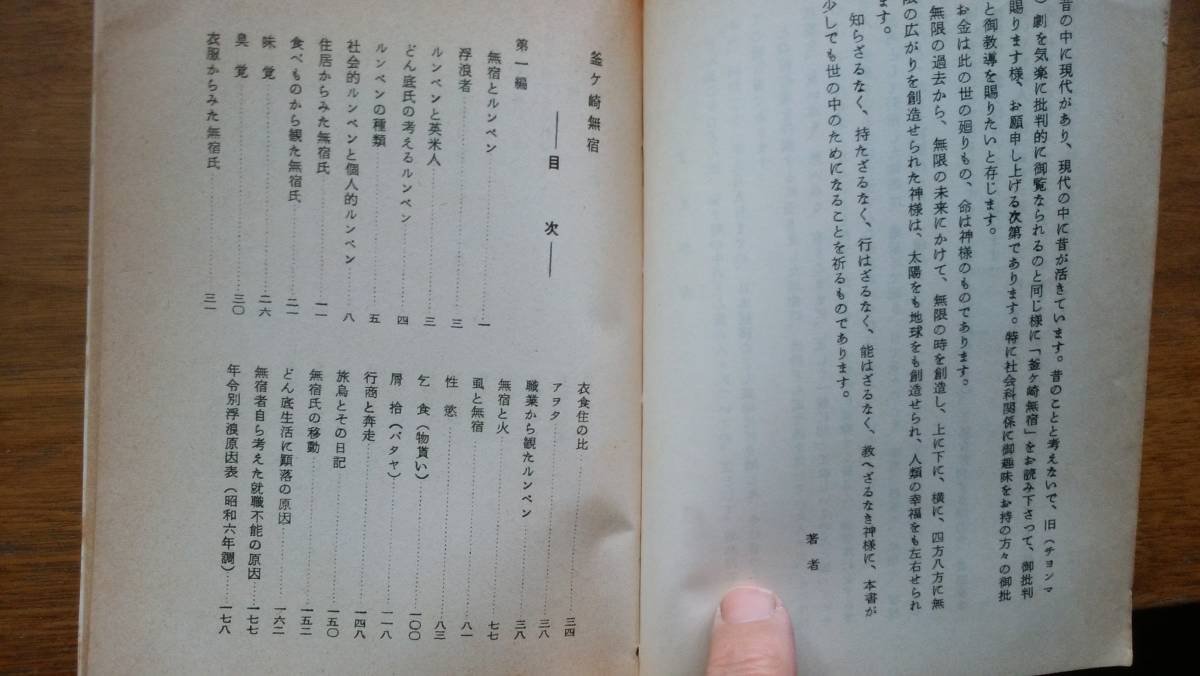 昔の中に現代があり、現代の中に昔が活きています。昔のことと考えないで、旧（チヨンマ
）劇を気楽に批判的に御覧なられるのと同じ様に「釜ヶ崎無宿」をお読み下さって、御批判
賜ります様、お願申し上げる次第であります。特に社会科関係に御趣味をお持の方々の御批
と御教導を賜りたいと存じます。
お金は此の世の廻りもの、命は神様のものであります。
無限の過去から、無限の未来にかけて、無限の時を創造し、上に下に、横に、四方八方に無
限の広がりを創造せられた神様は、太陽をも地球をも創造せられ、人類の幸福をも左右せられ
ます。
知らざるなく、持たざるなく、行はざるなく、能はざるなく、教へざるなき神様に、本書が
少しでも世の中のためになることを祈るものであります。
著者
釜ヶ崎無宿
目次
第一編
無宿とルンペン 一
浮浪者 三
ルンペンと英米人 三
どん底氏の考えるルンペン 四
ルンペンの種類 五
社会的ルンペンと個人的ルンペン 八
住居からみた無宿氏 一一
食べものから観た無宿氏 二一
味覚 二六
臭覚 三〇
衣服からみた無宿氏 三一
衣食住の比 三四
アヲタ 三八
職業から観たルンペン 三八
無宿と火 七七
虱と無宿 八一
性慾 八三
乞食（物貰い） 一〇〇
屑拾（バタヤ） 一一八
行商と奔走 一四八
旅烏とその日記 一五〇
無宿氏の移動 一五二
どん底生活に顚落の原因 一六二
無宿者自ら考えた就職不能の原因 一七七
年令別浮浪原因表（昭和六年調） 一七八